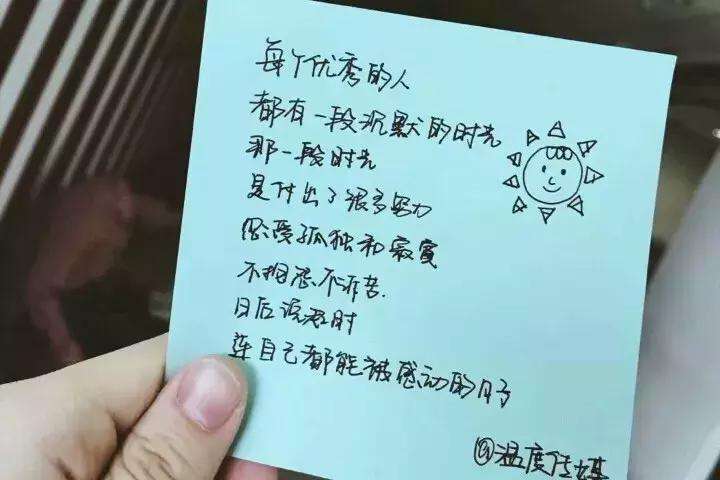 每个优秀的人
都有一段沉默的时光
那一段时光
是付出了很多努力
忍受孤独和寂寞
不抱怨不诉苦.
日后说起时
连自己都能被感动的日子
@温度传媒